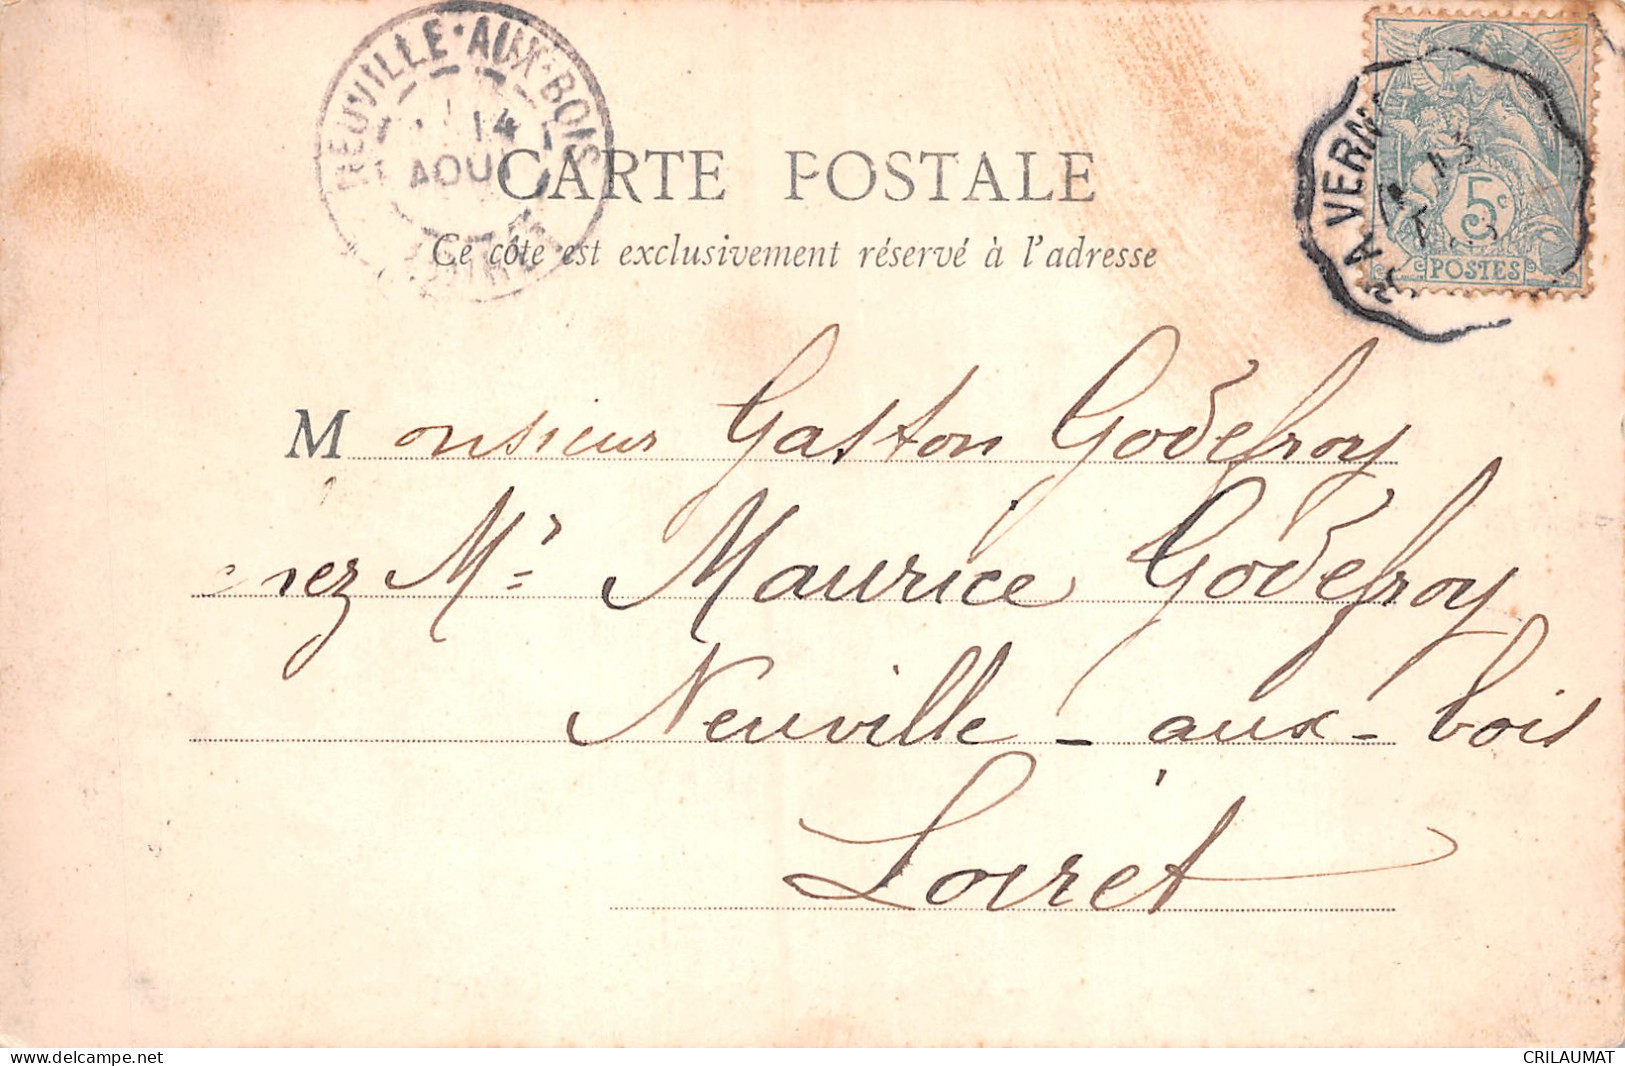 NEUVILLE-AUX-BOIS
14
AOUT
CARTE POSTALE
Ce côte est exclusivement réservé à l'adresse
A VERN
5c
POSTES
Monsieur Gaston Godefroy
chez Mr Maurice Godefroy
Neuville-aux-bois
Loiret
CRILAUMAT